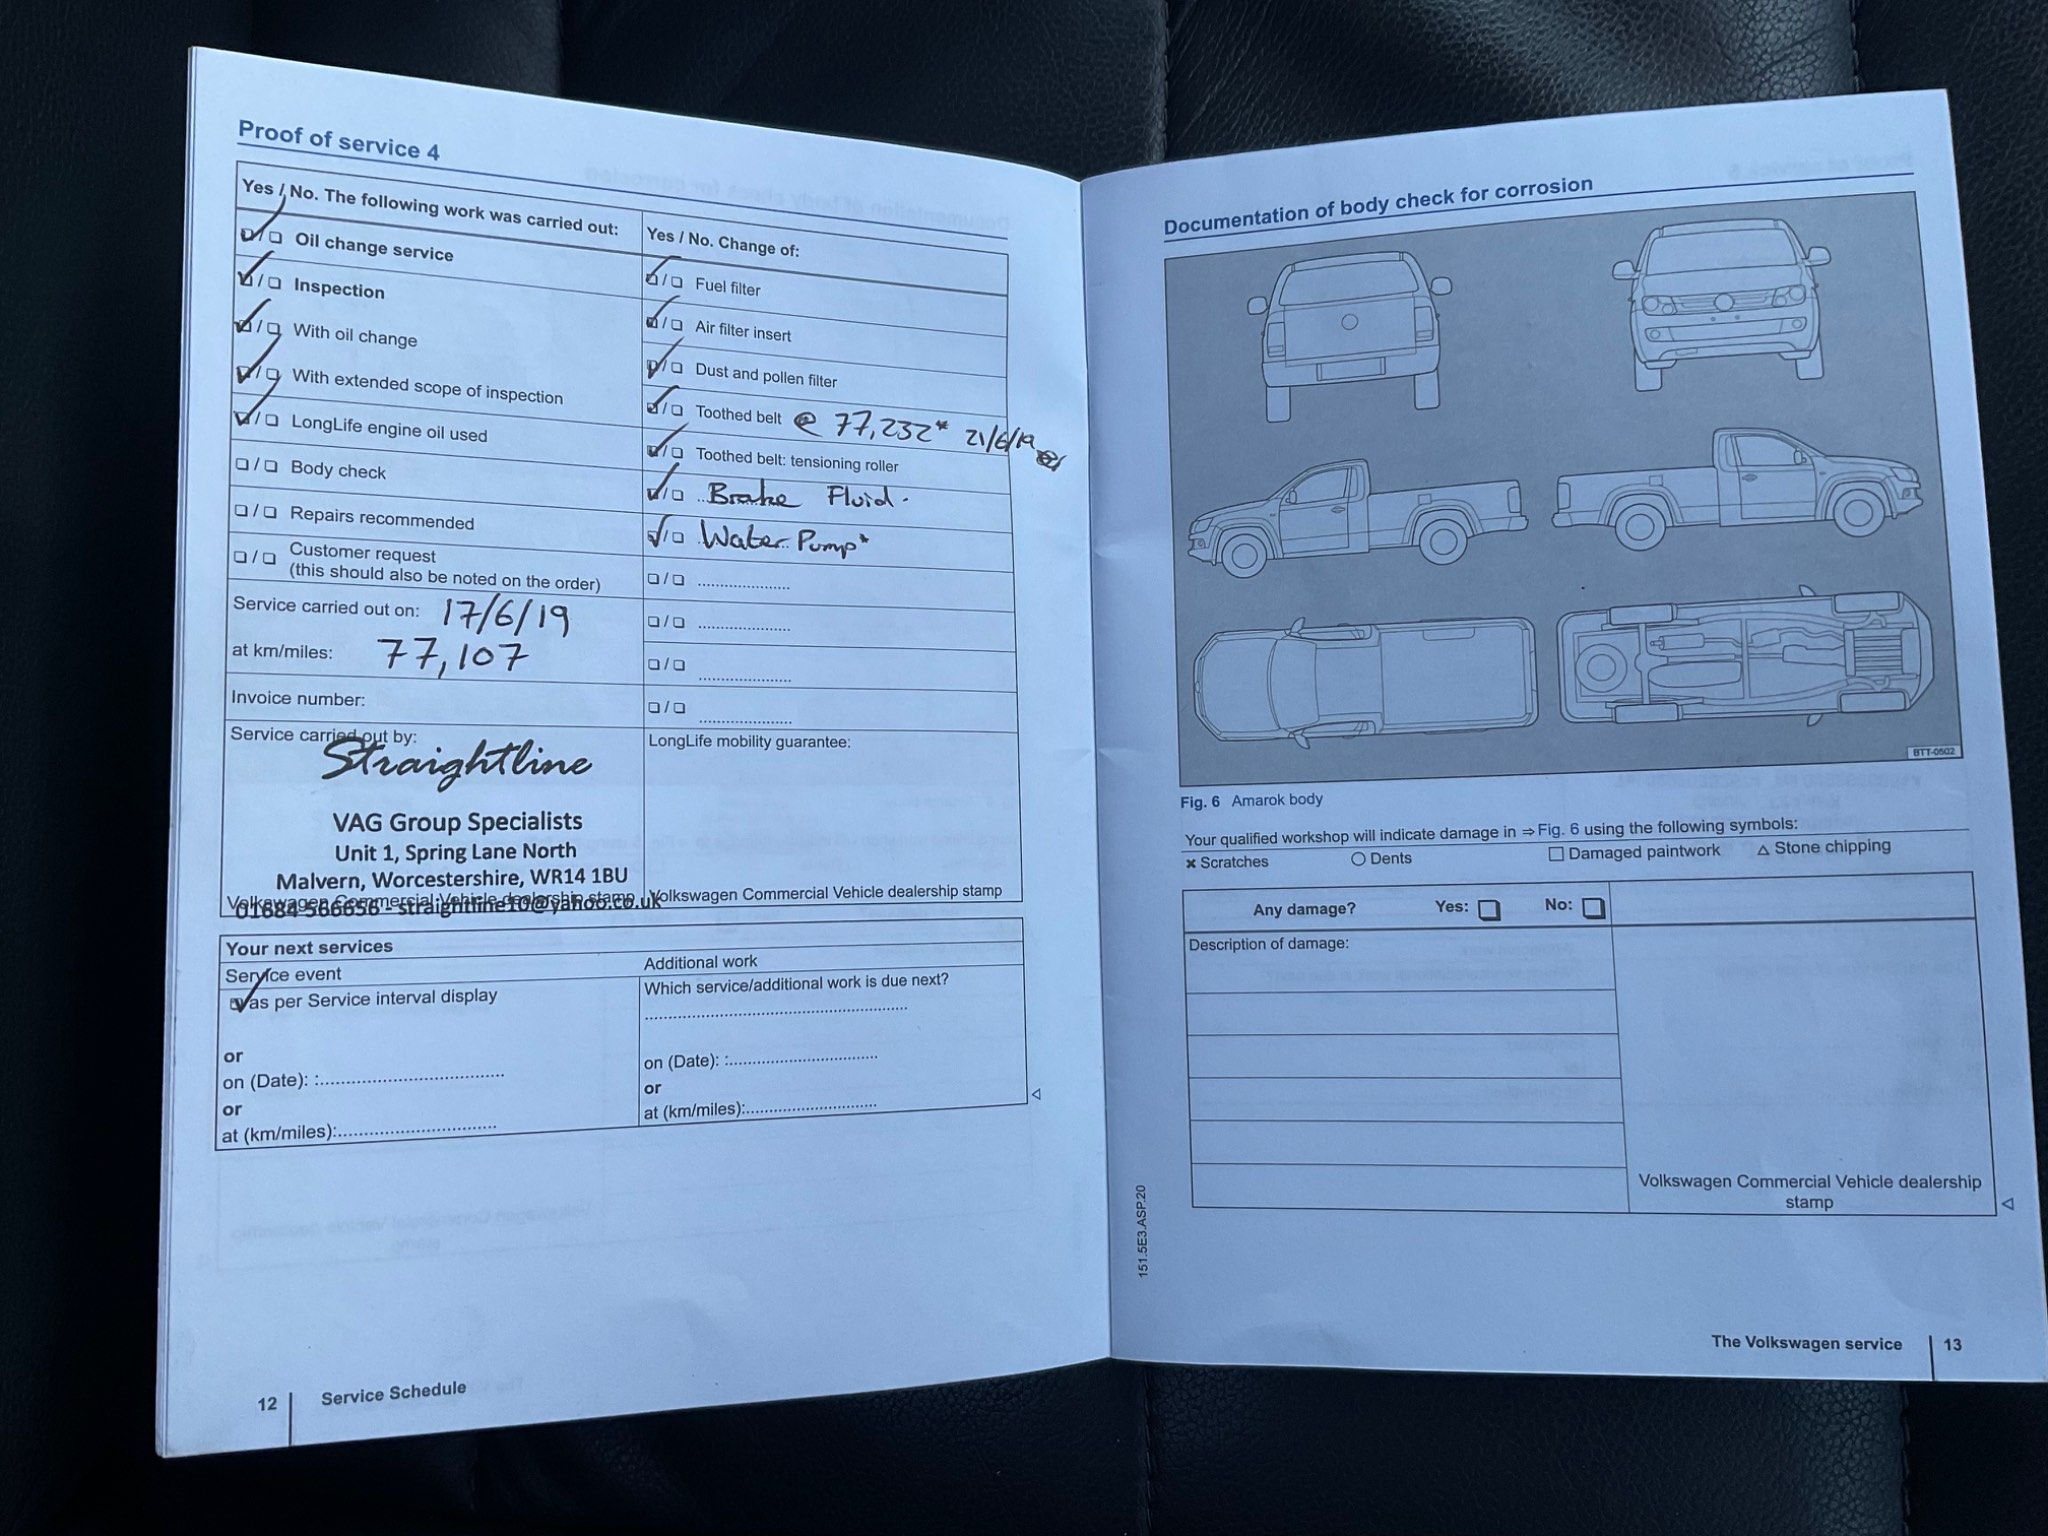 Proof of service 4
Yes / No. The following work was carried out:
❑/❑ Oil change service
❑/❑ Inspection
❑/❑ With oil change
❑/❑ With extended scope of inspection
❑/❑ LongLife engine oil used
❑/❑ Body check
❑/❑ Repairs recommended
❑/❑ Customer request
(this should also be noted on the order)
Service carried out on: 17/6/19
at km/miles: 77,107
Invoice number:
Service carried out by:
Straightline
VAG Group Specialists
Unit 1, Spring Lane North
Malvern, Worcestershire, WR14 1BU
Volkswagen Commercial Vehicle dealership stamp
01684 566656 - straightline10@yahoo.co.uk
Yes / No. Change of:
❑/❑ Fuel filter
❑/❑ Air filter insert
❑/❑ Dust and pollen filter
❑/❑ Toothed belt @ 77,232* 21/6/19
❑/❑ Toothed belt: tensioning roller
❑/❑ Brake Fluid.
❑/❑ Water Pump*
❑/❑ .....................
❑/❑ .....................
❑/❑ .....................
❑/❑ .....................
LongLife mobility guarantee:
Volkswagen Commercial Vehicle dealership stamp
Your next services
Service event
as per Service interval display
or
on (Date): :.....................................
or
at (km/miles):................................
Additional work
Which service/additional work is due next?
.....................................................
on (Date): :..............................
or
at (km/miles):..........................
12 Service Schedule
Documentation of body check for corrosion
BTT-0502
Fig. 6 Amarok body
Your qualified workshop will indicate damage in ⇒ Fig. 6 using the following symbols:
✖ Scratches ○ Dents □ Damaged paintwork △ Stone chipping
Any damage? Yes: ❑ No: ❑
Description of damage:
Volkswagen Commercial Vehicle dealership
stamp
151.5E3.ASP.20
The Volkswagen service 13